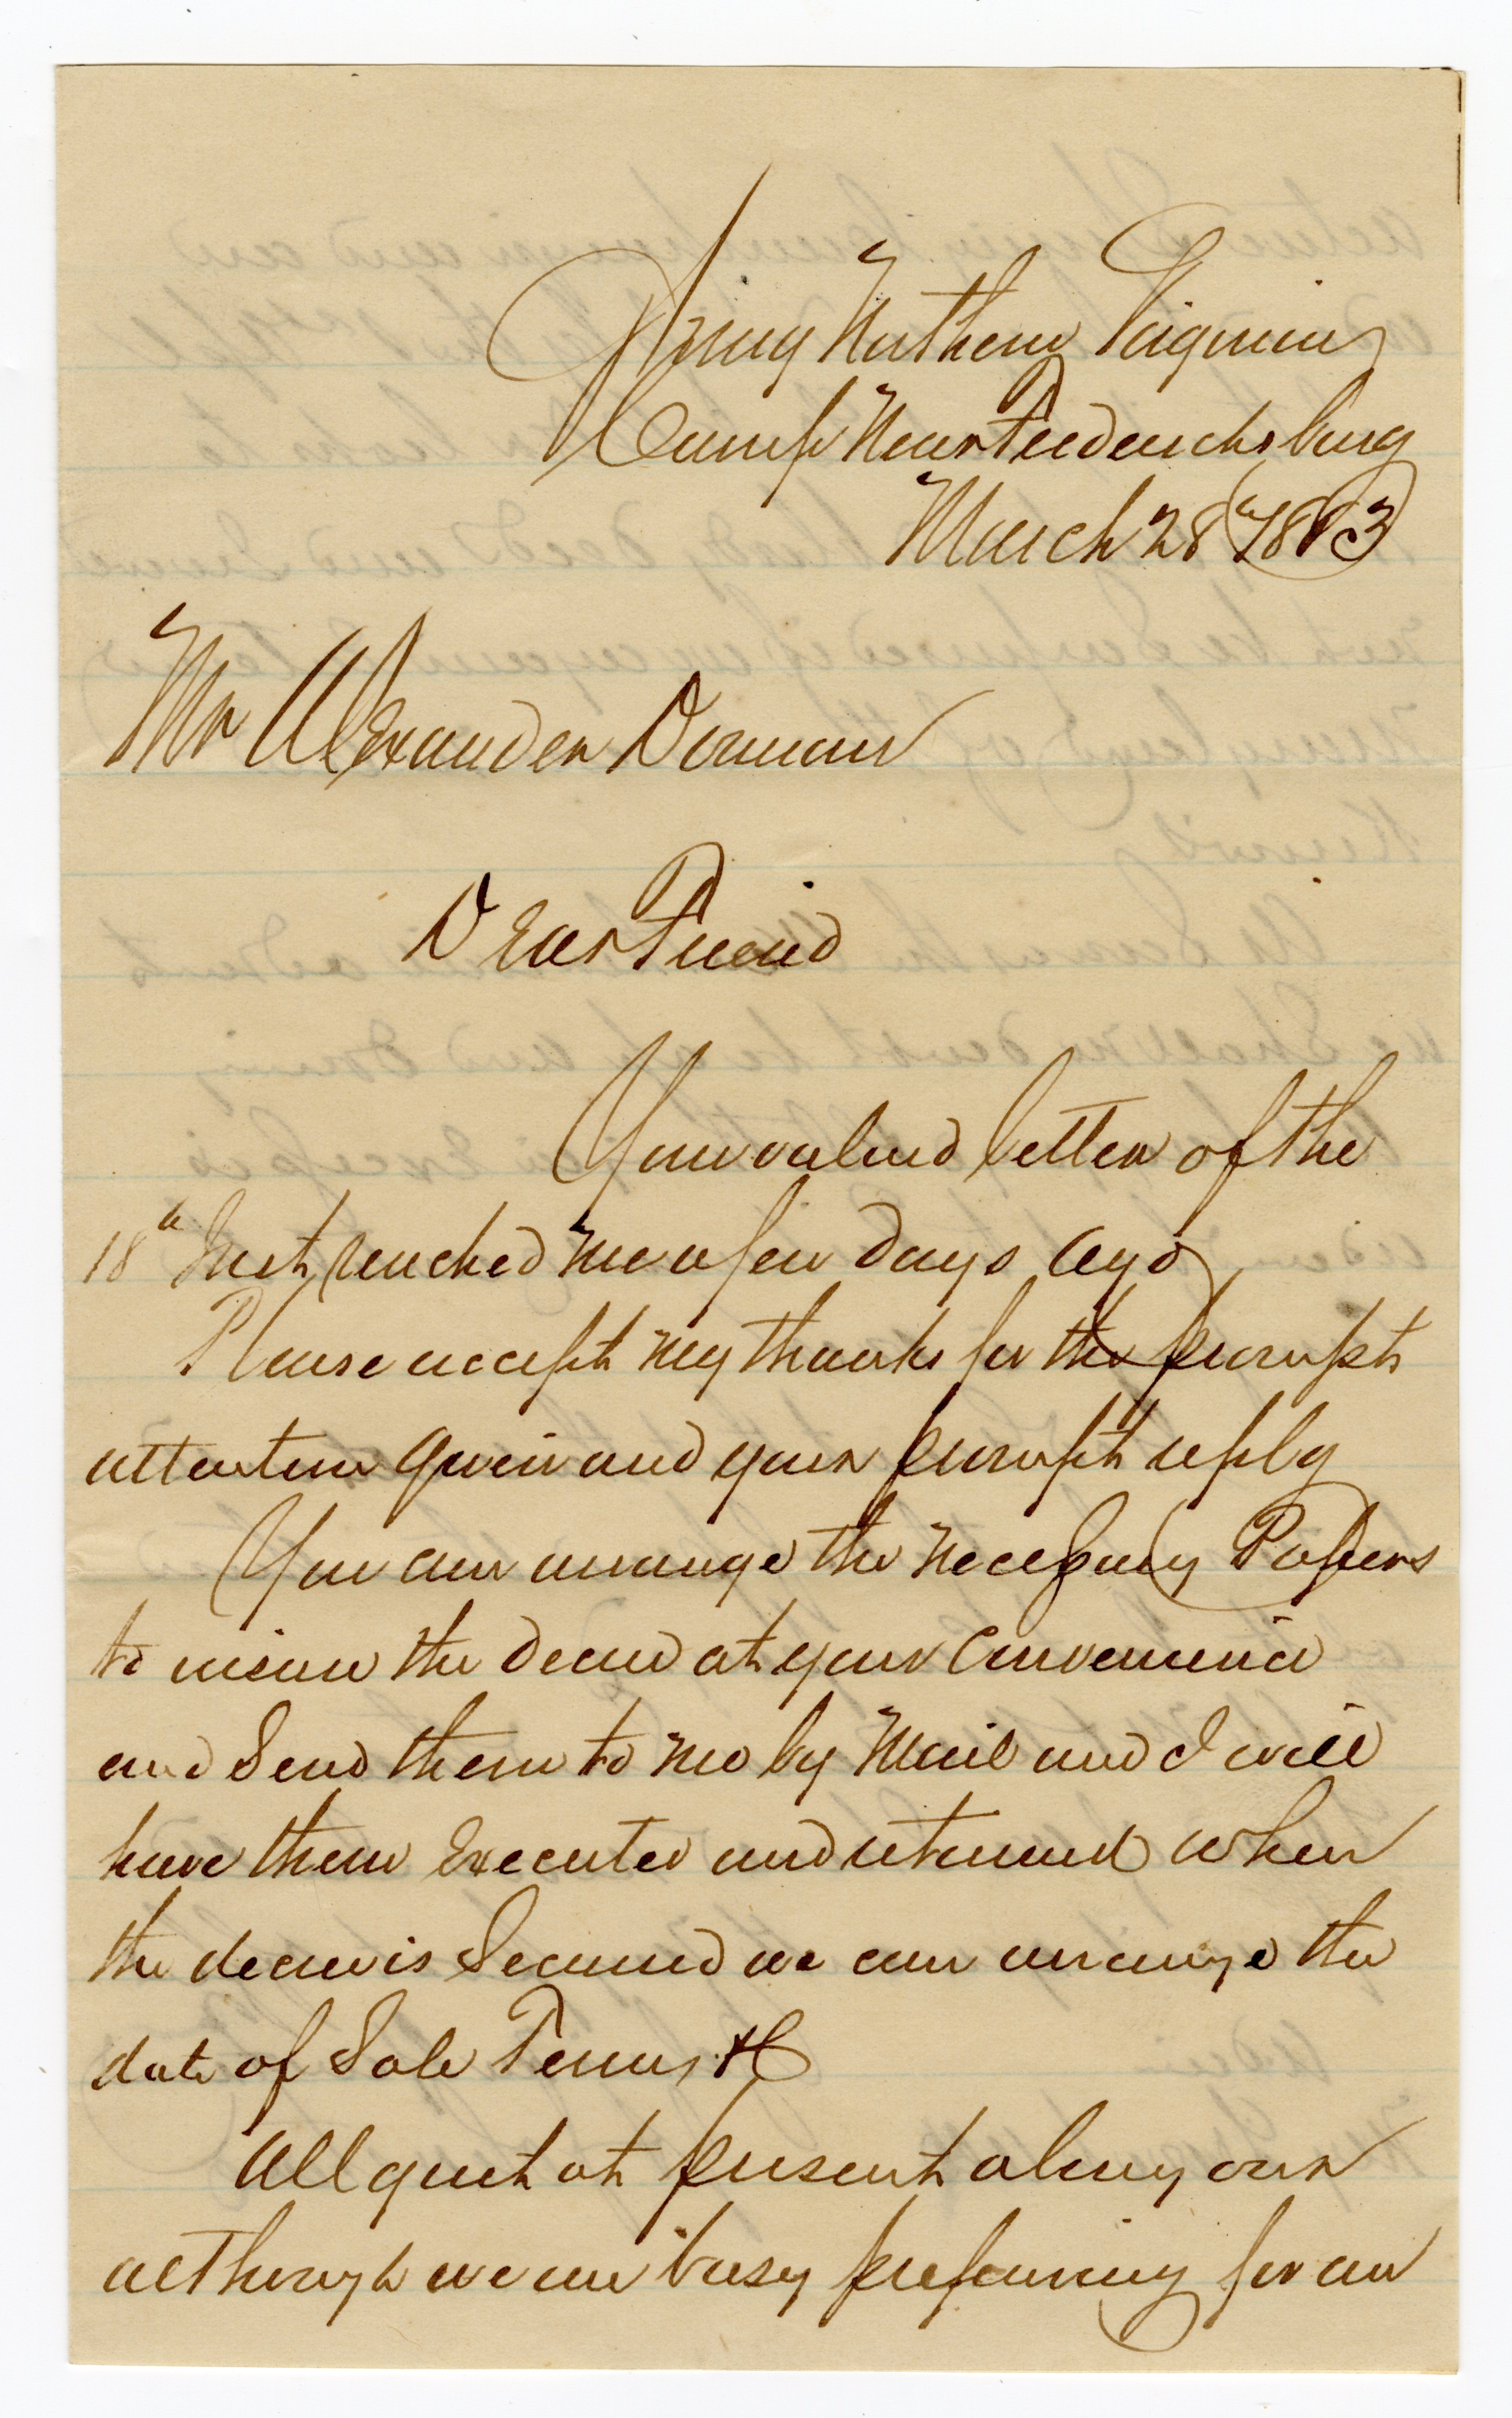 Army Northern Virginia
Camp Near Fredericksburg
March 28 1863
Mr Alexander Dorman
Dear Friend
Your valued letter of the
18th Inst, reached me a few days ago
Please accept my thanks for the prompt
attention given and your prompt reply
You can arrange the necessary Papers
to the decree at your convenience
and Send them to me by Mail and I will
have them Executed and returned when
the decree is Secured we can arrange the
date of Sale Terms &c
All quiet at present along our
although we are busy preparing for an